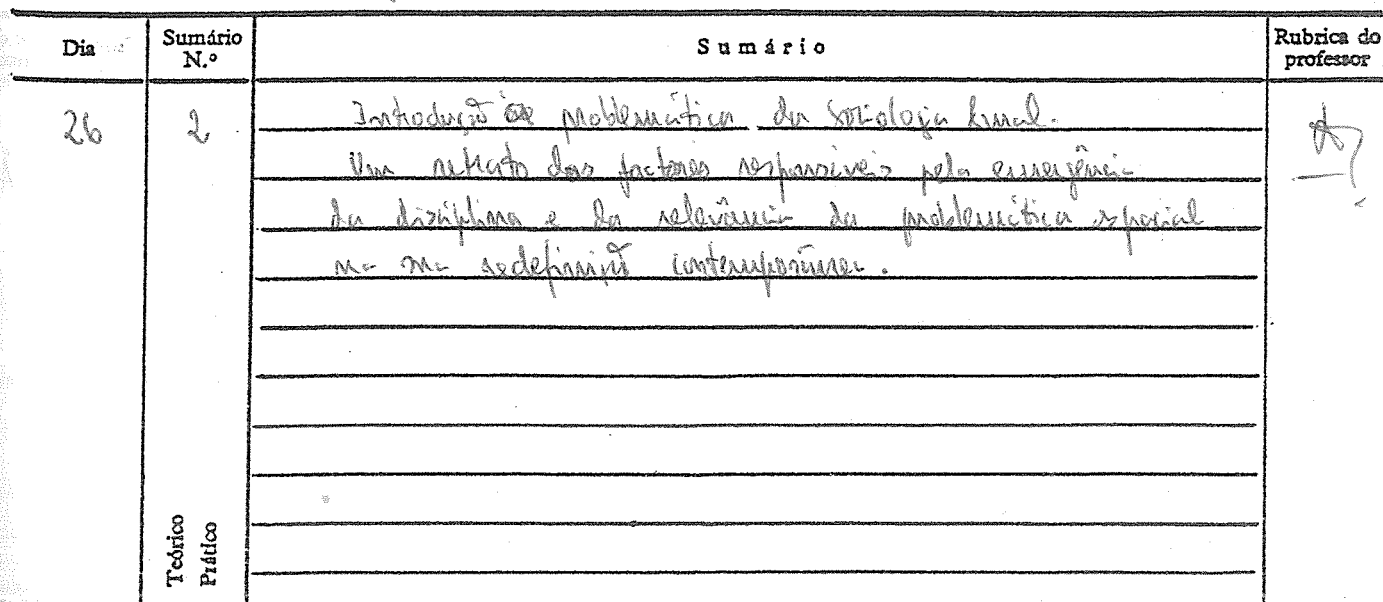 Dia
Sumário N.º
Sumário
Rubrica do professor
26
2
Introdução problemática da Sociologia Rural.
Um retrato dos factores responsáveis pela emergência
da disciplina e da relevância da problemática espacial
na sua redefinição contemporânea.
Teórico
Prático